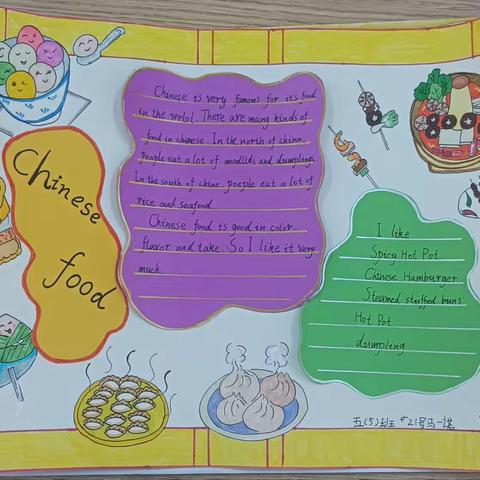 Chinese food
Chinese is very famous for it's food
in the wrlol. There are mang kinds of
food in chinese. In the north of china
people eat a lot of noodlds and dumpling
In the south of chine. poeple eat a lot of
rice and seafood.
Chinese food is good in color
flavor and take. So I like it very
much
I like
Spicy Hot Pot
Chinese Hamburger
Steamed stuffed buns
Hot Pot
dumpling
五(5)班 21号马一诺